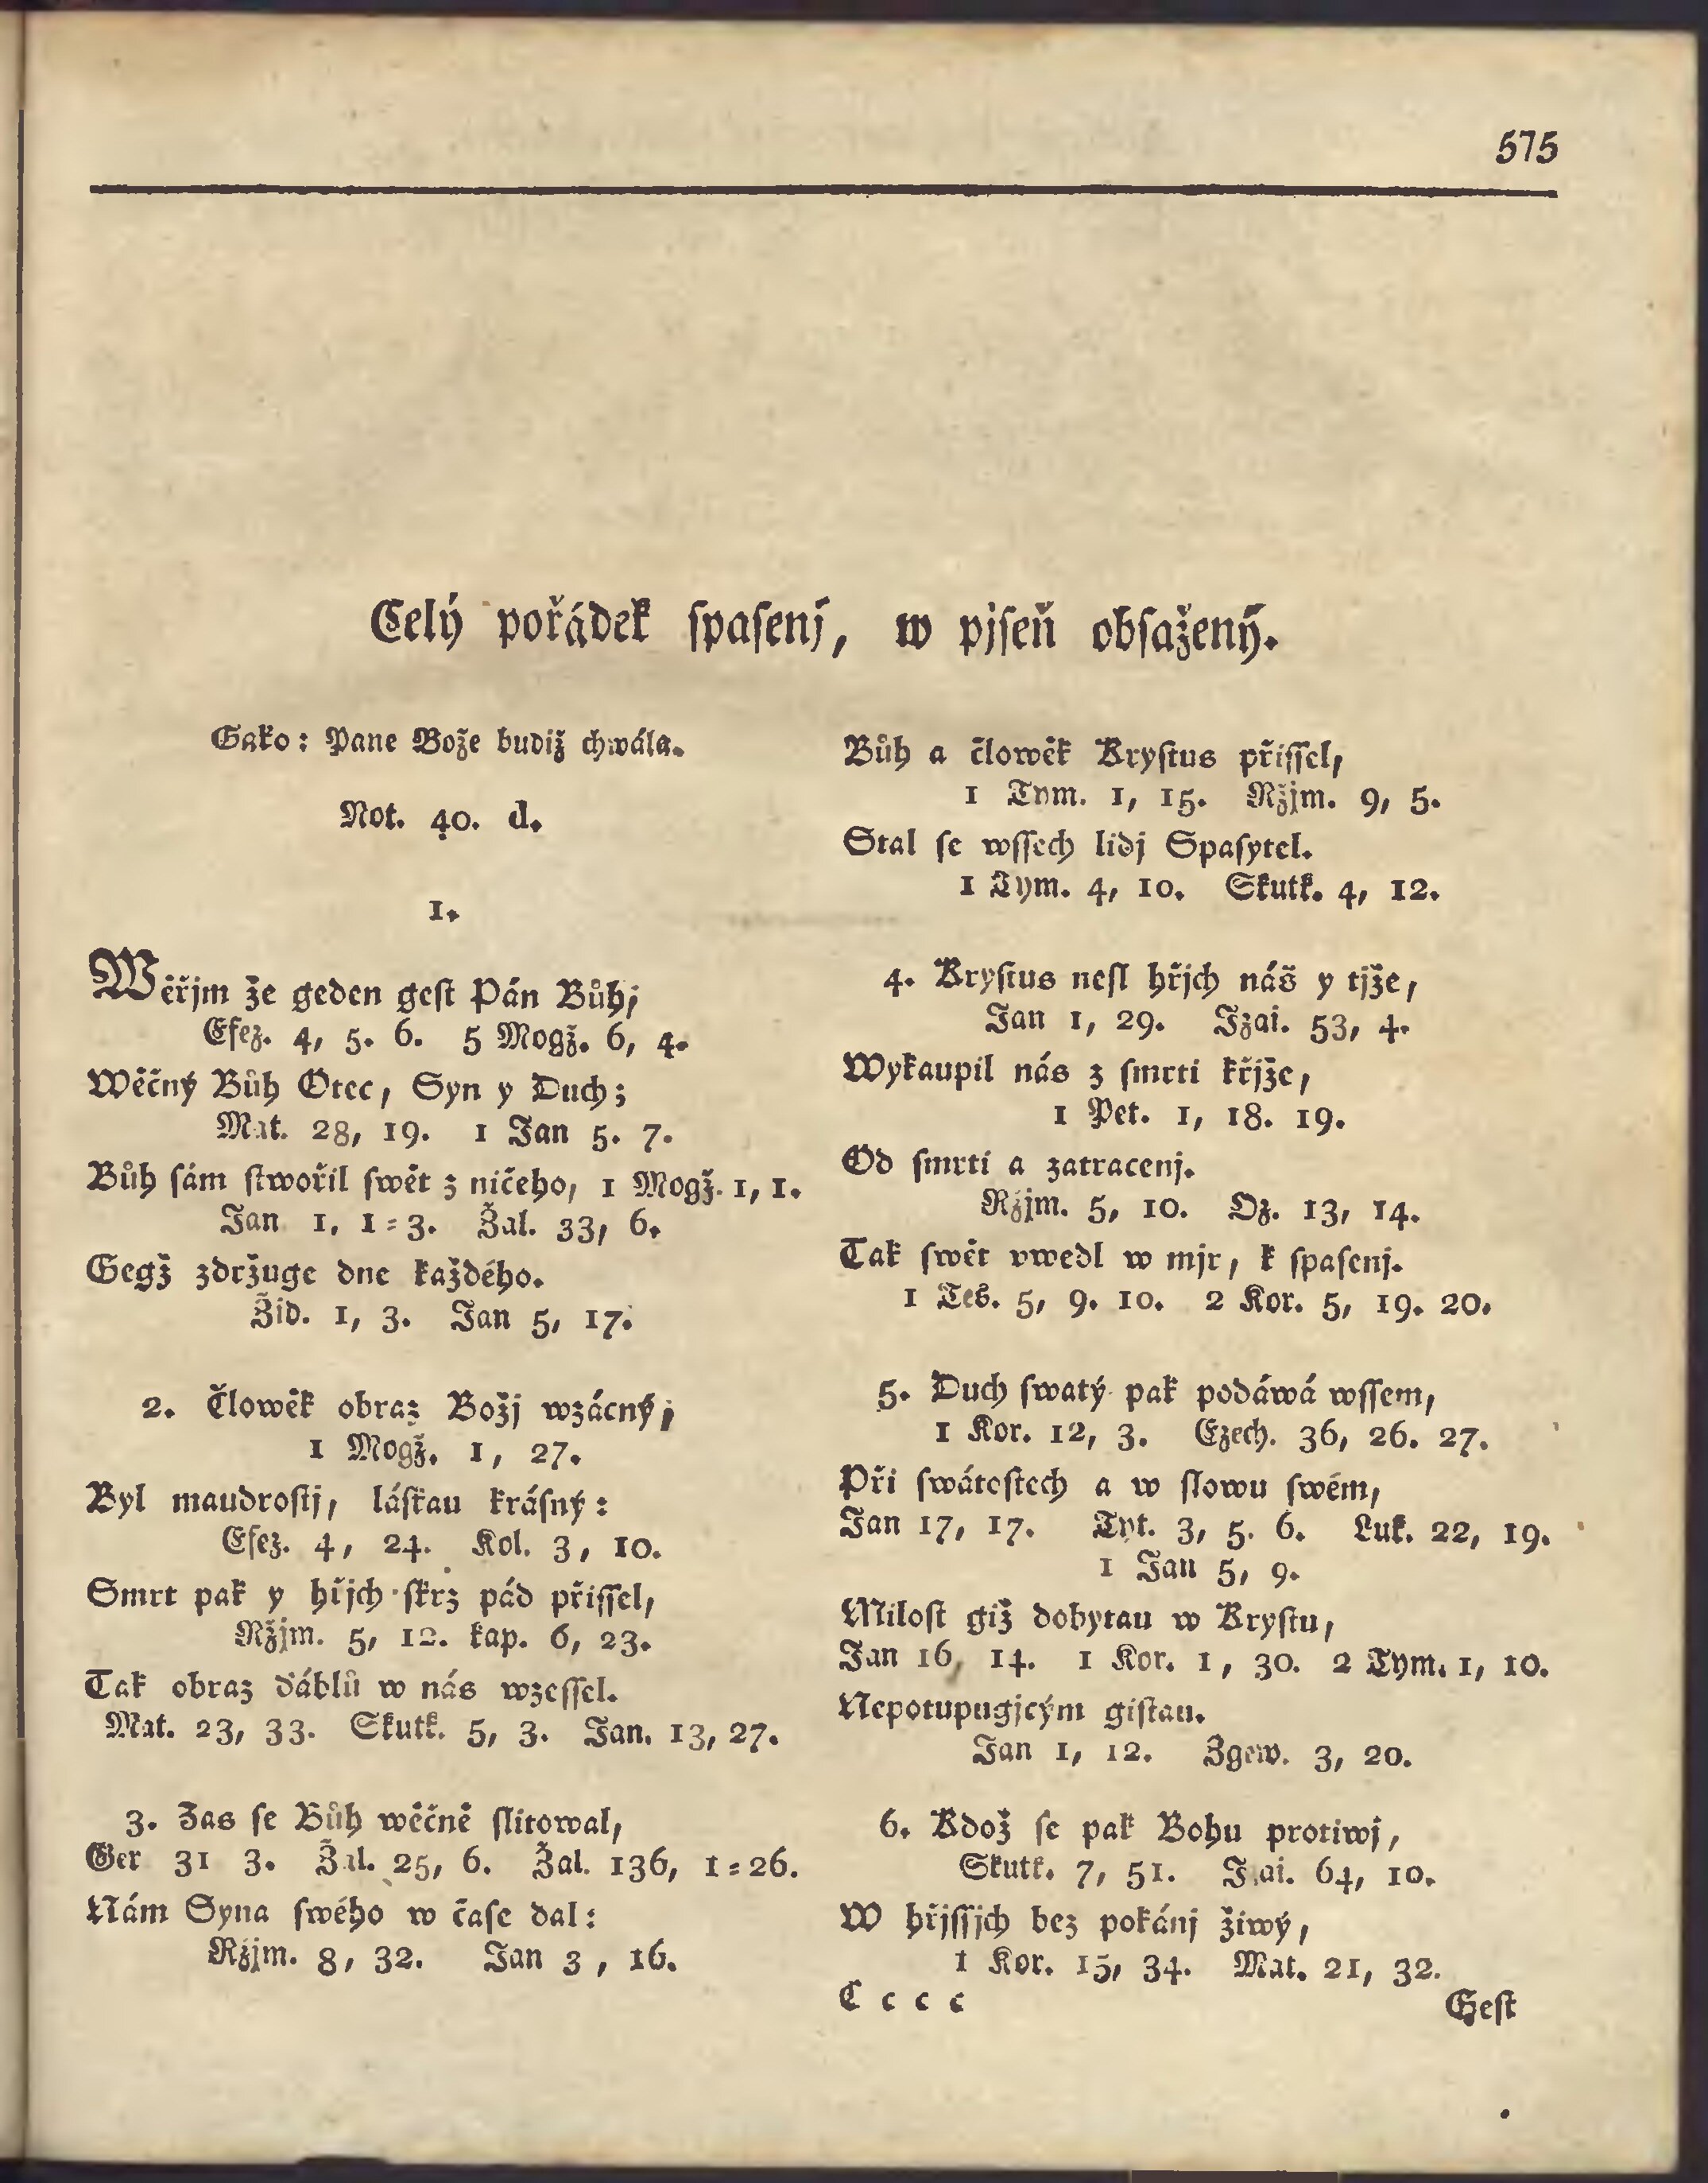 575
Celý pořádek ſpaſenj, w pjſeň obſažený.
Gako: Pane Bože budiž chwála.
Not. 40. d.
1.
Wěřjm že geden geſt Pán Bůh;
Efez. 4, 5. 6. 5 Mogž. 6, 4.
Wěčný Bůh Otec, Syn y Duch;
Mat. 28, 19. 1 Jan 5. 7.
Bůh ſám ſtwořil ſwět z ničeho, 1 Mogž. 1, 1.
Jan 1, 1=3. Žal. 33, 6.
Gegž zdržuge dne každého.
Žid. 1, 3. Jan 5, 17.
2. Člowěk obraz Božj wzácný;
1 Mogž. 1, 27.
Byl maudroſtj, láſkau kráſný:
Efez. 4, 24. Kol. 3, 10.
Smrt pak y hřjch ſkrz pád přiſſel,
Ržjm. 5, 12. kap. 6, 23.
Tak obraz ďáblů w nás wzeſſel.
Mat. 23, 33. Skutk. 5, 3. Jan. 13, 27.
3. Zas ſe Bůh wěčně ſlitowal,
Ger 31 3. Žal. 25, 6. Žal. 136, 1=26.
Nám Syna ſwého w čaſe dal:
Ržjm. 8, 32. Jan 3, 16.
Bůh a člowěk Kryſtus přiſſel,
1 Tym. 1, 15. Ržjm. 9, 5.
Stal ſe wſſech lidj Spaſytel.
1 Tym. 4, 10. Skutk. 4, 12.
4. Kryſtus neſl hřjch náš y tjže,
Jan 1, 29. Jzai. 53, 4.
Wykaupil nás z ſmrti křjže,
1 Pet. 1, 18. 19.
Od ſmrti a zatracenj.
Ržjm. 5, 10. Oz. 13, 14.
Tak ſwět vwedl w mjr, k ſpaſenj.
1 Teš. 5, 9. 10. 2 Kor. 5, 19. 20.
5. Duch ſwatý pak podáwá wſſem,
1 Kor. 12, 3. Ezech. 36, 26. 27.
Při ſwáteſtech a w ſlowu ſwém,
Jan 17, 17. Tyt. 3, 5. 6. Luk. 22, 19.
1 Jan 5, 9.
Miloſt giž dobytau w Kryſtu,
Jan 16, 14. 1 Kor. 1, 30. 2 Tym. 1, 10.
Nepotupugjcým giſtau.
Jan 1, 12. Zgew. 3, 20.
6. Kdož ſe pak Bohu protiwj,
Skutk. 7, 51. Jzai. 64, 10.
W hřjſſjch bez pokánj žiwý,
1 Kor. 15, 34. Mat. 21, 32.
C c c c
Geſt